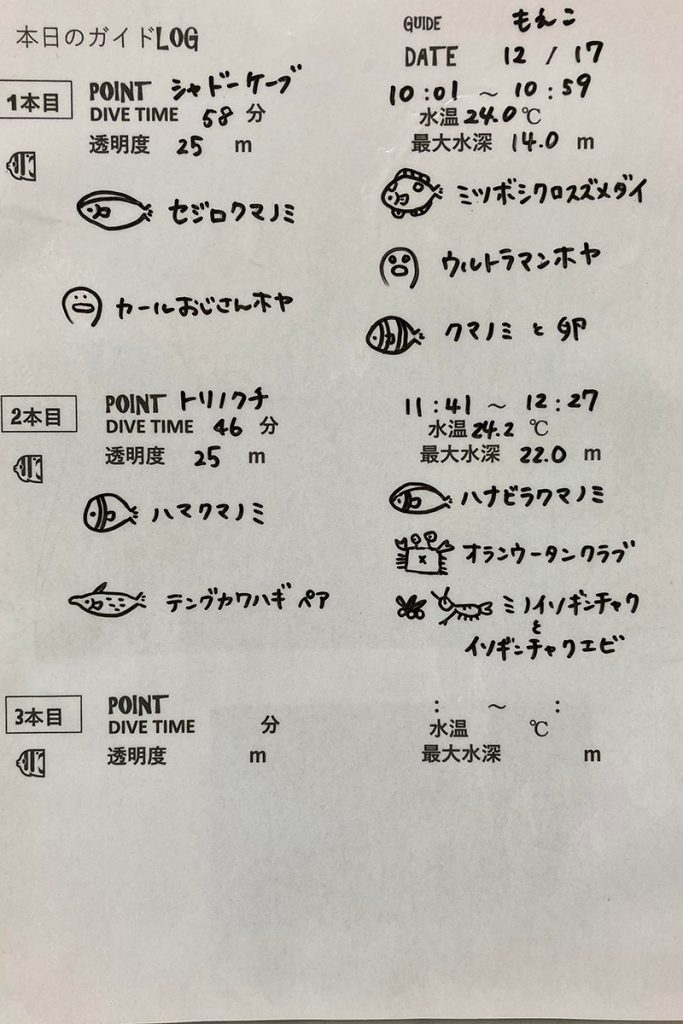 本日のガイドLOG
GUIDE もえこ
DATE 12 / 17
1本目
POINT シャドーケーブ 10:01 ～ 10:59
DIVE TIME 58 分 水温 24.0 ℃
透明度 25 m 最大水深 14.0 m
セジロクマノミ ミツボシクロスズメダイ
ウルトラマンホヤ
カールおじさんホヤ
クマノミ と 卵
2本目
POINT トリノクチ 11:41 ～ 12:27
DIVE TIME 46 分 水温 24.2 ℃
透明度 25 m 最大水深 22.0 m
ハマクマノミ ハナビラクマノミ
オランウータンクラブ
テングカワハギ ペア ミノイソギンチャク
と
イソギンチャクエビ
3本目
POINT : ～ :
DIVE TIME 分 水温 ℃
透明度 m 最大水深 m